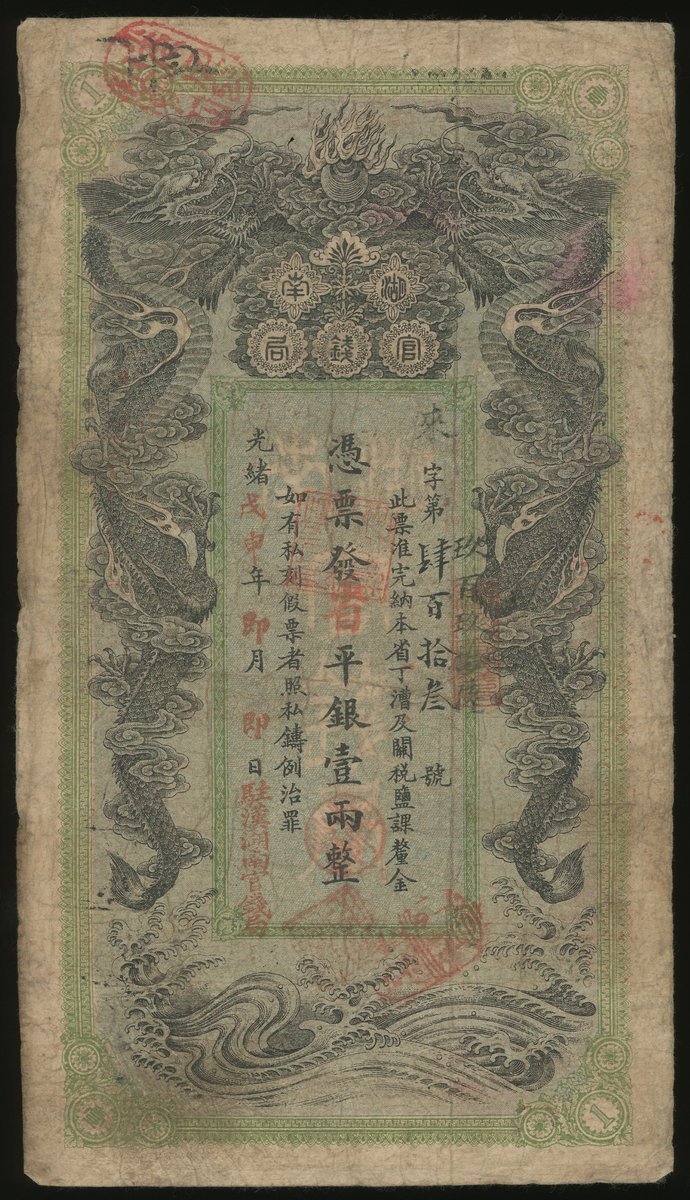 湖南
官錢局
來字第肆百拾叁號
此票准完納本省丁漕及關税鹽課釐金
憑票發省平銀壹兩整
如有私刻假票者照私鑄例治罪
光緒戊申年即月即日
駐漢湖南官錢局
1
壹
壹
1